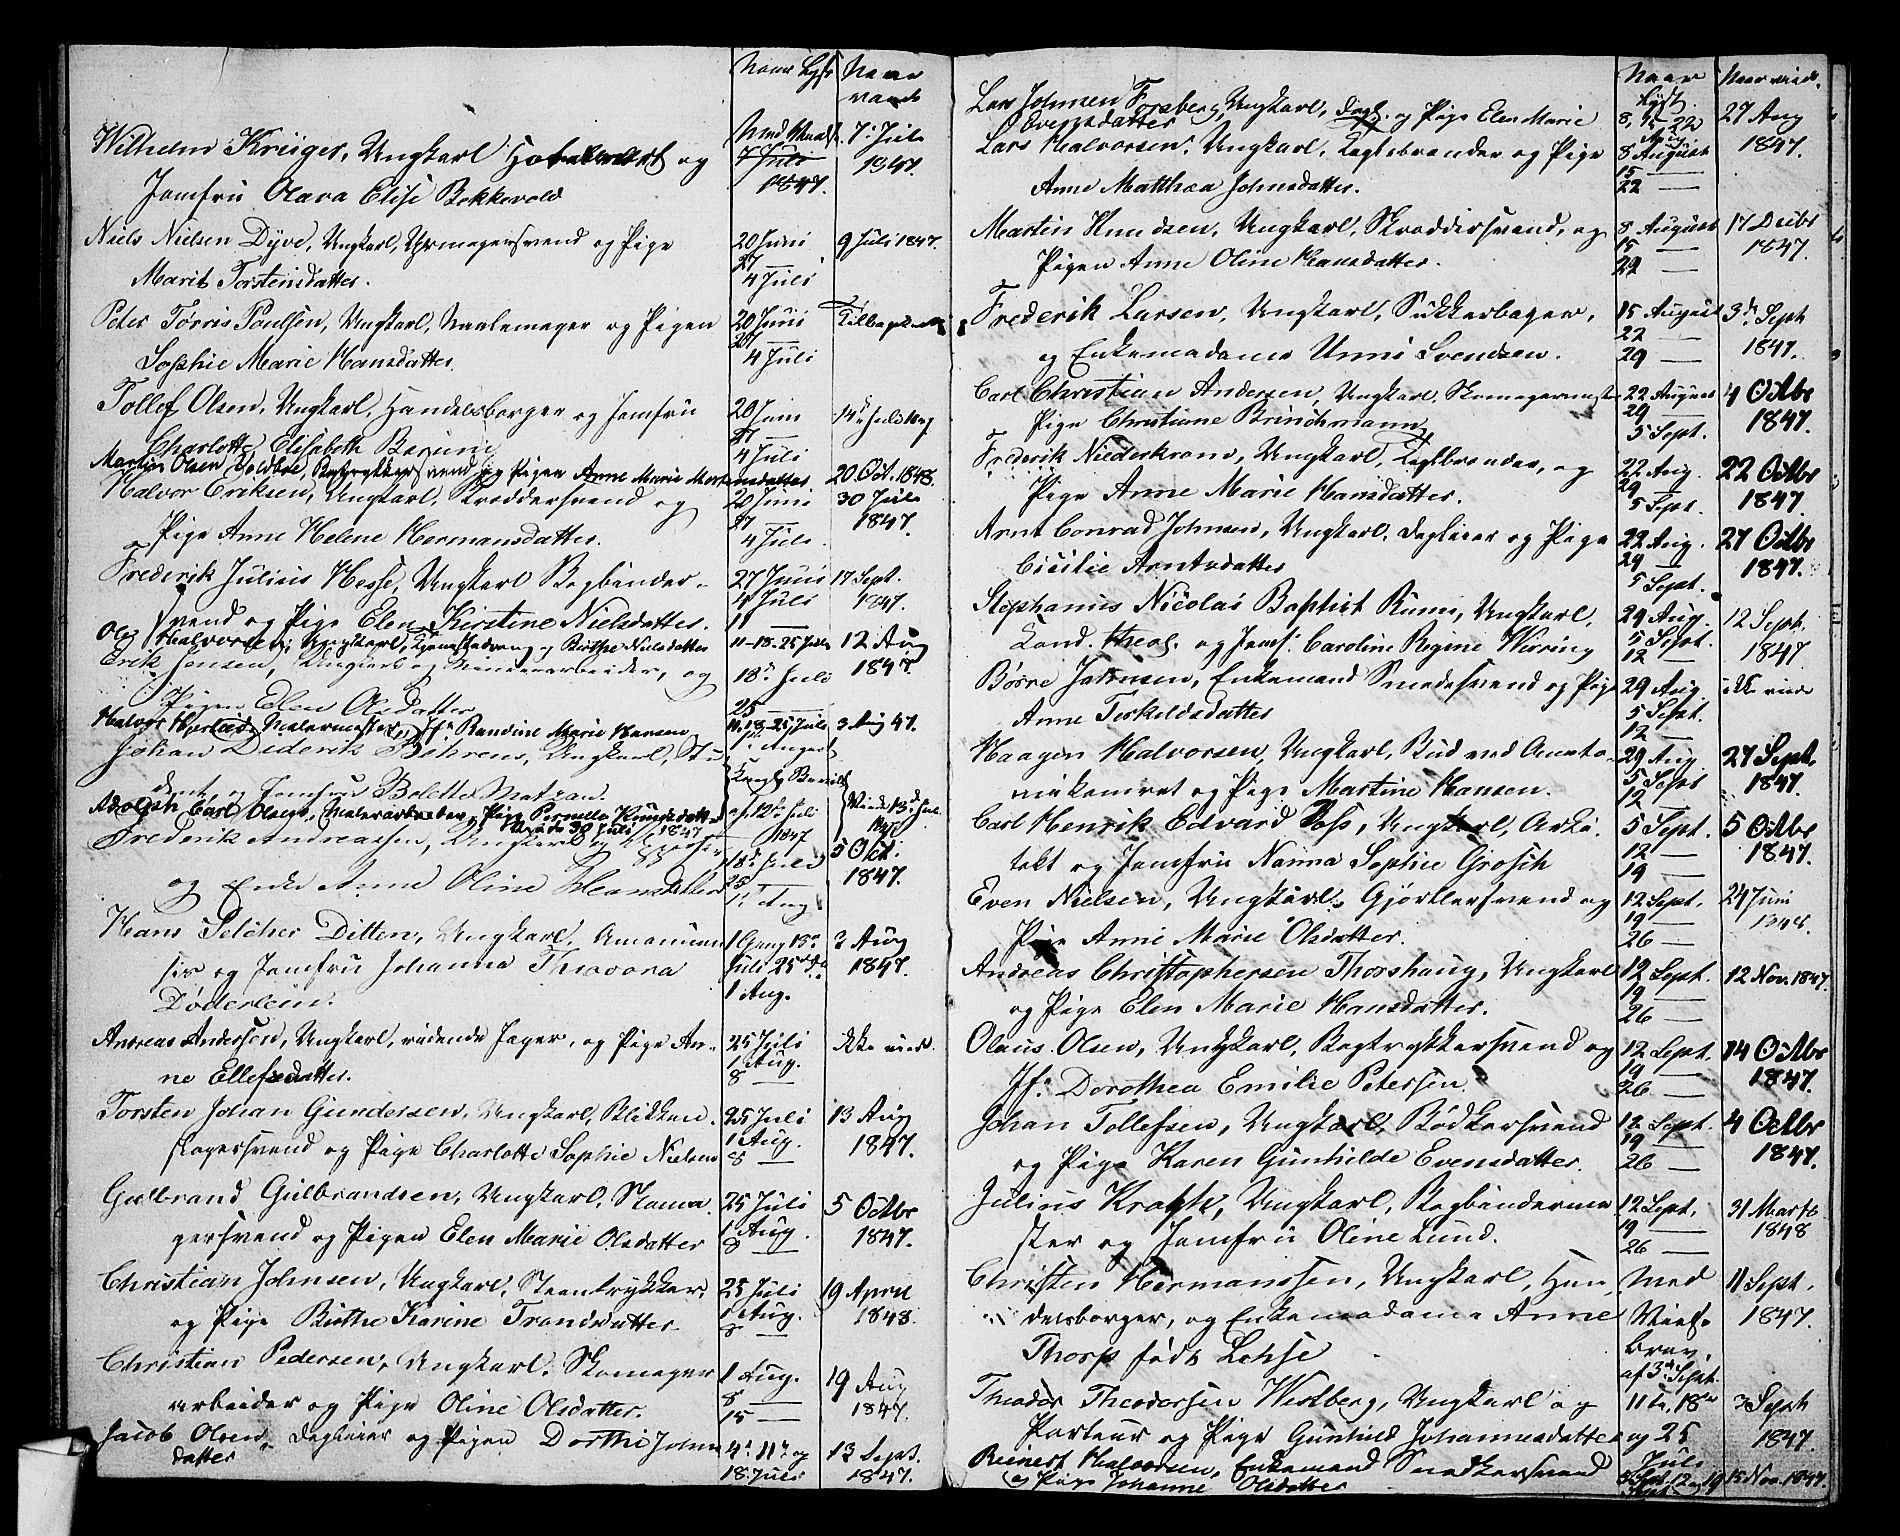 Naar Lyst Naar
viede
Wilhelm Krüger, Ungkarl og
Jomfru Olava Elise Bokkevold
7 Juli 1847. 7. Juli 1847.
Niels Nielsen Dyve, Ungkarl, Uhrmagersvend og Pige 20 Juni 9 Juli 1847.
Marit Torstensdatter. 27 —
4 Juli
Peter Tørris Poulsen, Ungkarl, Naalemager og Pigen 20 Juni
Sophie Marie Hansdatter. 27 —
4 Juli
Tollef Olsen, Ungkarl, Handelsborger og Jomfru 20 Juni 14de Juli
Charlotte Elisabeth 27 —
4 Juli
Martin Olsen Bogtrykkersvend og Pigen Anne Marie Mortensdatter 20 Oct. 1848.
Halvor Eriksen, Ungkarl, Skræddersvend og 20 Juni 30 Juli
Pige Anne Helene Hermansdatter. 27 — 1847.
4 Juli
Frederik Julius Hesse, Ungkarl Bogbinder- 27 Juni 17 Sept.
svend og Pige Elen Kirstine Nielsdatter. 4 Juli 1847.
11 —
Ole Halvorsen, Ungkarl, og Birthe Nielsdatter 11-18-25 Juli 12 Aug
Erik Jensen, Ungkarl og 18de Juli 1847.
Pigen Elen Olsdatter 25 —
Halvor Malermester, Jfr. Randine Marie Hansen 11.18-25 Juli 3 Aug 47.
Johan Diderik Behrens, Ungkarl, Stu-
dent, og Jomfru Bolette
Adolph Carl Olsen, Malerarbeider, Pige Pernille Knudsdatter
af 12te Juli 1847 Viede 13de Juli 1847
Viede 30 Juli 1847
Frederik Andreassen, Ungkarl og 18de Juli 5 Oct.
og Enke Anne Oline Hansdatter 25 — 1847.
1. Aug
Hans Selcher Ditten, Ungkarl, Amanuen- 1 Gang 18de 3 Aug
sis og Jomfru Johanna Theodora Juli 25de 1847.
Døderlein. 1 Aug.
Andreas Andersen, Ungkarl, ridende Jæger, og Pige An- 25 Juli ikke viede.
ne Ellefsdatter. 1 Aug.
8 —
Torsten Johan Gundersen, Ungkarl, Blikken- 25 Juli 13 Aug
slagersvend og Pige Charlotte Sophie Nielsen 1 Aug. 1847.
8 —
Gulbrand Gulbrandsen, Ungkarl, Skoma- 25 Juli 5 Octbr
gersvend og Pigen Elen Marie Olsdatter 1 Aug. 1847.
8 —
Christian Johnsen, Ungkarl, Steentrykker, 25 Juli 19 April
og Pige Birthe Karine Trondsdatter 1 Aug. 1848.
8 —
Christian Pedersen, Ungkarl, Skomager 1 Aug. 19 Aug
arbeider og Pige Oline Olsdatter. 8 — 1847.
15 —
Jacob Olsen, Dagleier og Pigen Dorthe Johns- 4de 11te og 13 Sept.
datter 18 Juli 1847.
Naar Lyst Naar viede
Lars Johnsen Forsberg, Ungkarl, og Pige Elen Marie 8, 15, 22 27 Aug
Evensdatter Aug 1847.
Lars Halvorsen, Ungkarl, Teglbrænder og Pige 8 August
Anne Matthea Johnsdatter. 15 —
22 —
Martin Knudsen, Ungkarl, Skræddersvend, og 8 August 17 Decbr
Pigen Anne Oline Hansdatter. 15 — 1847.
22 —
Frederik Larsen, Ungkarl, Sukkerbager, 15 August 3de Sept
og Enkemadame Unni Svendsen. 22 — 1847.
29 —
Carl Christian Andersen, Ungkarl, Skomagermester 22 August 4 Octbr
Pige Christiane Brinchmann 29 — 1847.
5 Sept.
Frederik Niederkrone, Ungkarl, Teglbrænder, og 22 Aug. 22 Octbr
Pige Anne Marie Hansdatter. 29 — 1847.
5 Sept.
Arnt Conrad Johnsen, Ungkarl, Dagleier og Pige 22 Aug. 27 Octbr
Cicilie Arntsdatter 29 — 1847.
5 Sept.
Stephanus Nicolai Baptist Rume, Ungkarl, 29 Aug. 12 Sept.
Cand. theol. og Jomf. Caroline Regine Wirring 5 Sept. 1847
12 —
Børre Jahnsen, Enkemand Smedesvend og Pige 29 Aug. ikke viede
Anne Terkeldsdatter 5 Sept.
12 —
Haagen Halvorsen, Ungkarl, Bud ved Anato- 29 Aug. 27 Sept.
miekamret og Pige Martine Hansen. 5 Sept 1847.
12 —
Carl Henrik Edvard Voss, Ungkarl, Arki- 5 Sept. 5 Octbr
tekt og Jomfru Nanna Sophie Grosch 12 — 1847.
19 —
Even Nielsen, Ungkarl, Gjørtlersvend og 12 Sept. 24 Juni
Pige Anne Marie Olsdatter. 19 — 1848.
26 —
Andreas Christophersen Thorshaug, Ungkarl 12 Sept. 12 Nov. 1847.
og Pige Elen Marie Hansdatter. 19 —
26 —
Olaus Olsen, Ungkarl, Bogtrykkersvend og 12 Sept. 14 Octbr
Jfr. Dorothea Emilie Petersen 19 — 1847.
26 —
Johan Tollefsen, Ungkarl, Bødkersvend 12 Sept. 4 Octbr
og Pige Karen Gunhilde Evensdatter. 19 — 1847.
26 —
Julius Ungkarl, Bogbinderme- 12 Sept. 31 Marts
ster og Jomfru Oline Lund. 19 — 1848
26 —
Christen Hermanssen, Ungkarl, Han- Med 11 Sept.
delsborger, og Enkemadame Anne Viels- 1847.
Thorp født Lohse brev,
af 3de Sept.
Theodor Theodorsen Westberg, Ungkarl og 11te, 18de 3 Sept
Porteur og Pige Gunhild Johannesdatter og 25 Juli 1847.
Reinert Halvorsen, Enkemand Snedkersvend 5 Sept. 12 og 19 15 Nov. 1847.
og Pige Johanne Olsdatter Sept